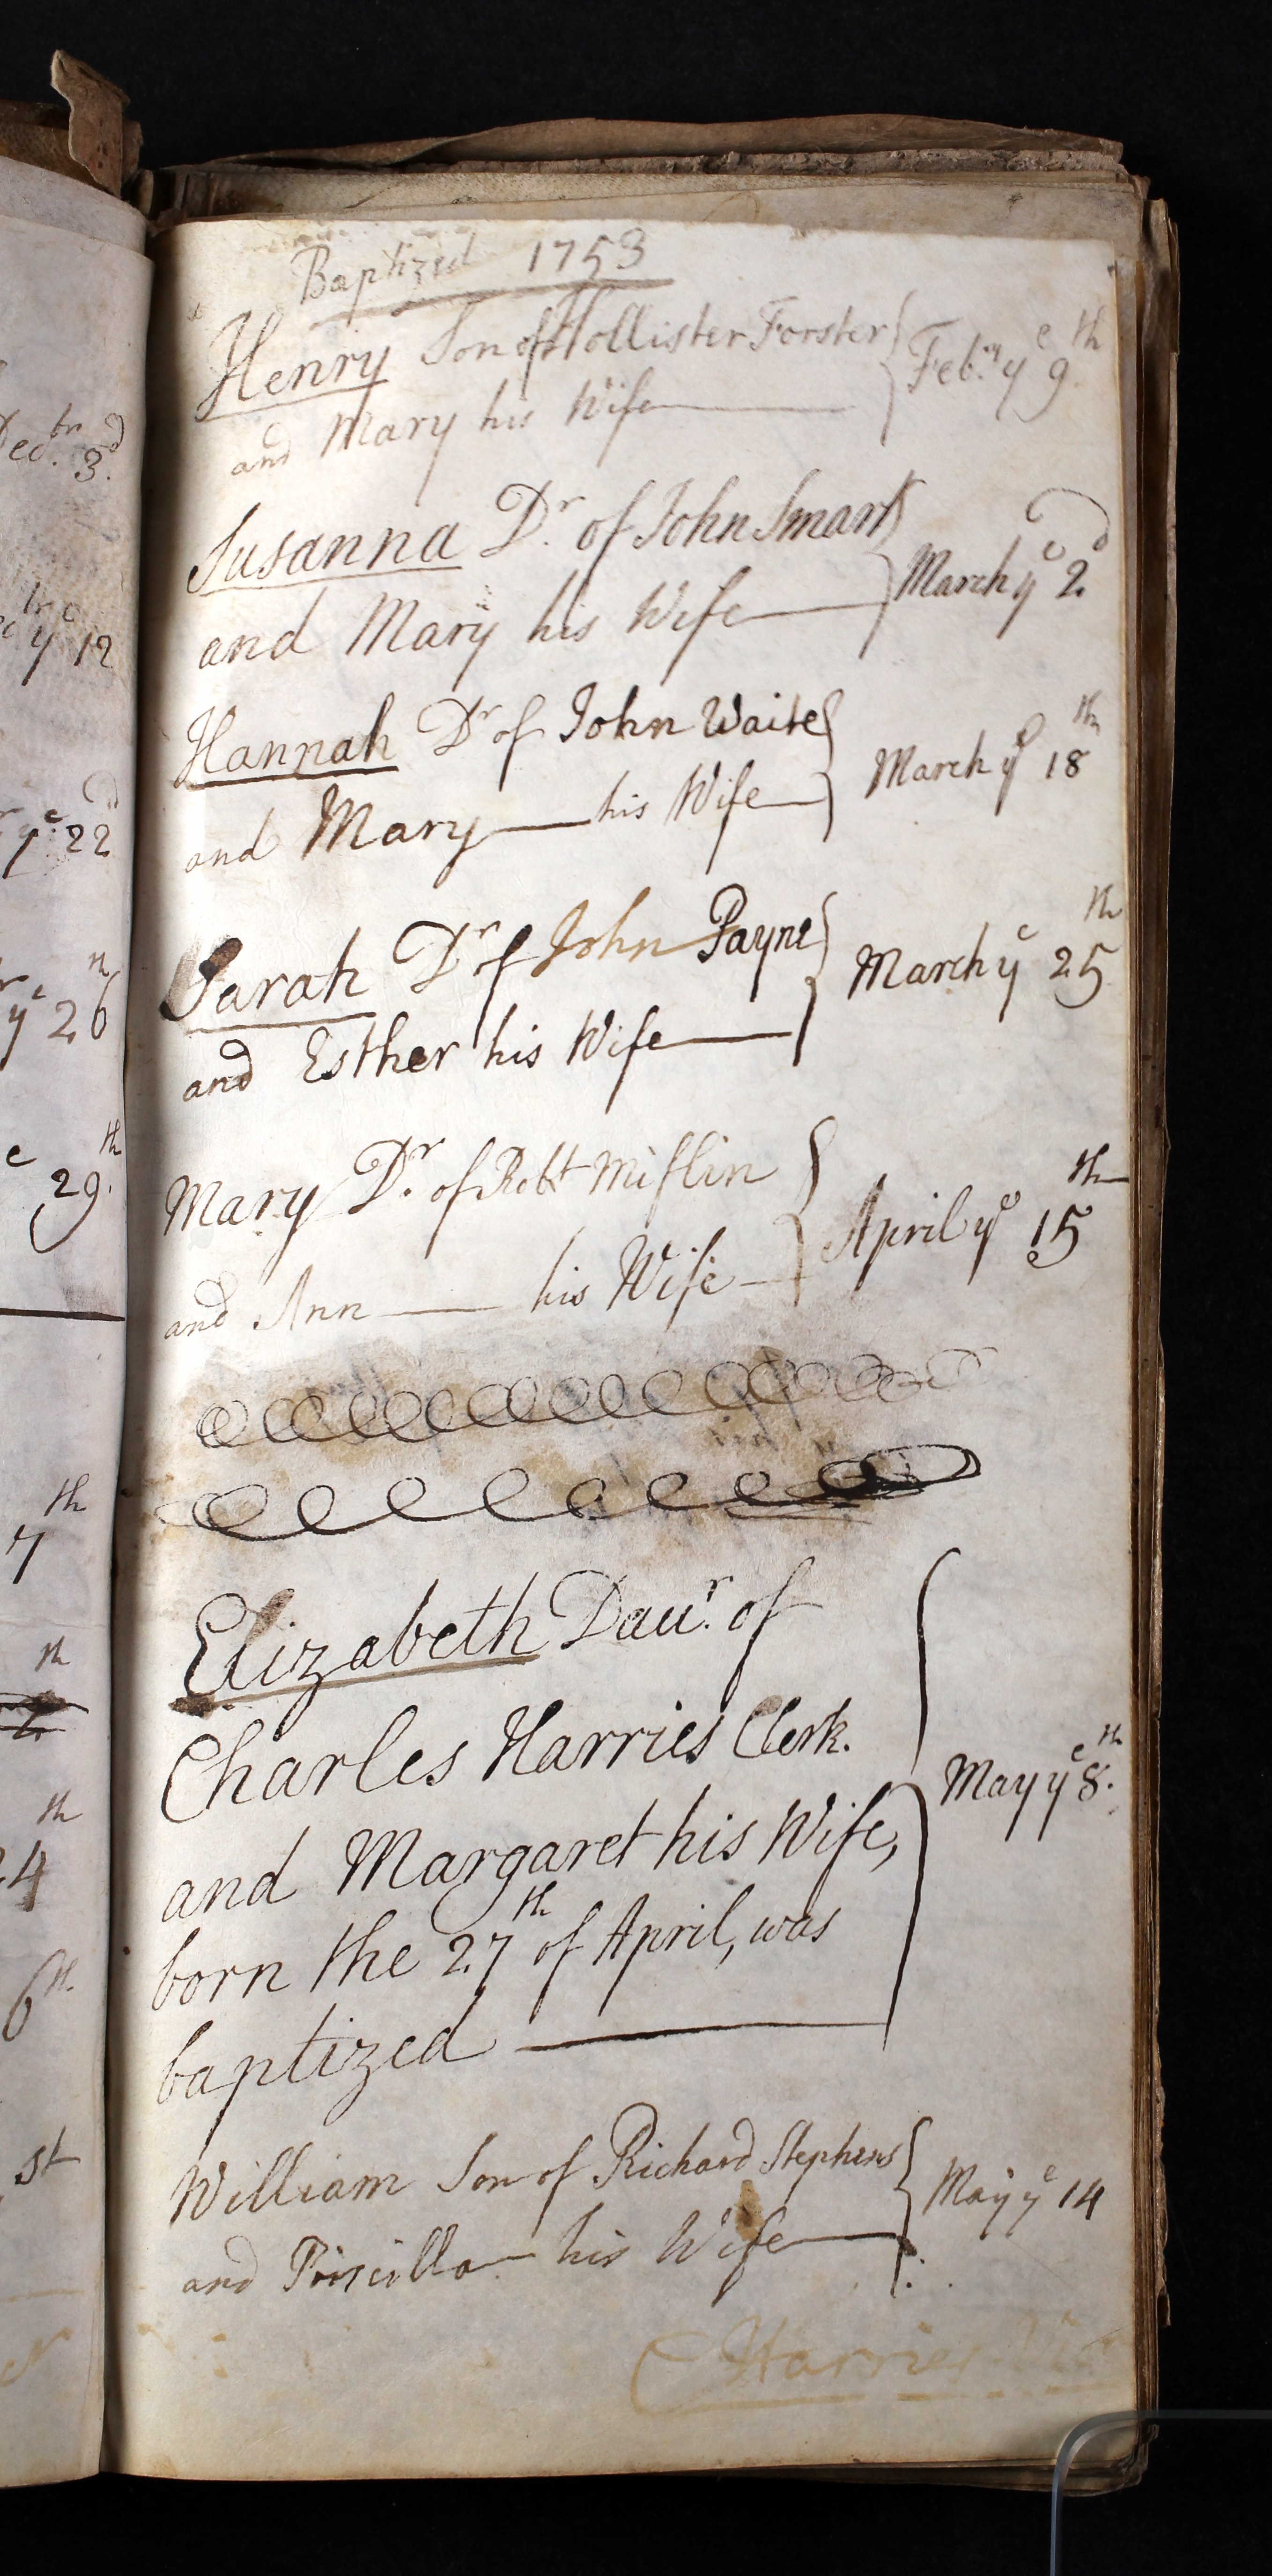 Baptized 1753
Henry Son of Hollister Forster
and Mary his Wife
Feb.ry ye 9th
Susanna Dr. of John Smart
and Mary his Wife
March ye 2d
Hannah Dr of John Waite
and Mary his Wife
March ye 18th
Sarah Dr of John Payne
and Esther his Wife
March ye 25th
Mary Dr. of Robt Miflin
and Ann his Wife
April ye 15th
Elizabeth Daur. of
Charles Harries Clerk.
and Margaret his Wife,
born the 27th of April, was
baptized
May ye 8th.
William Son of Richard Stephens
and Priscilla his Wife
May ye 14
C Harries
Decbr. 3d.
ye 12
ye 22d
ye 26
e 29th.
7th
th
24th
6th
st